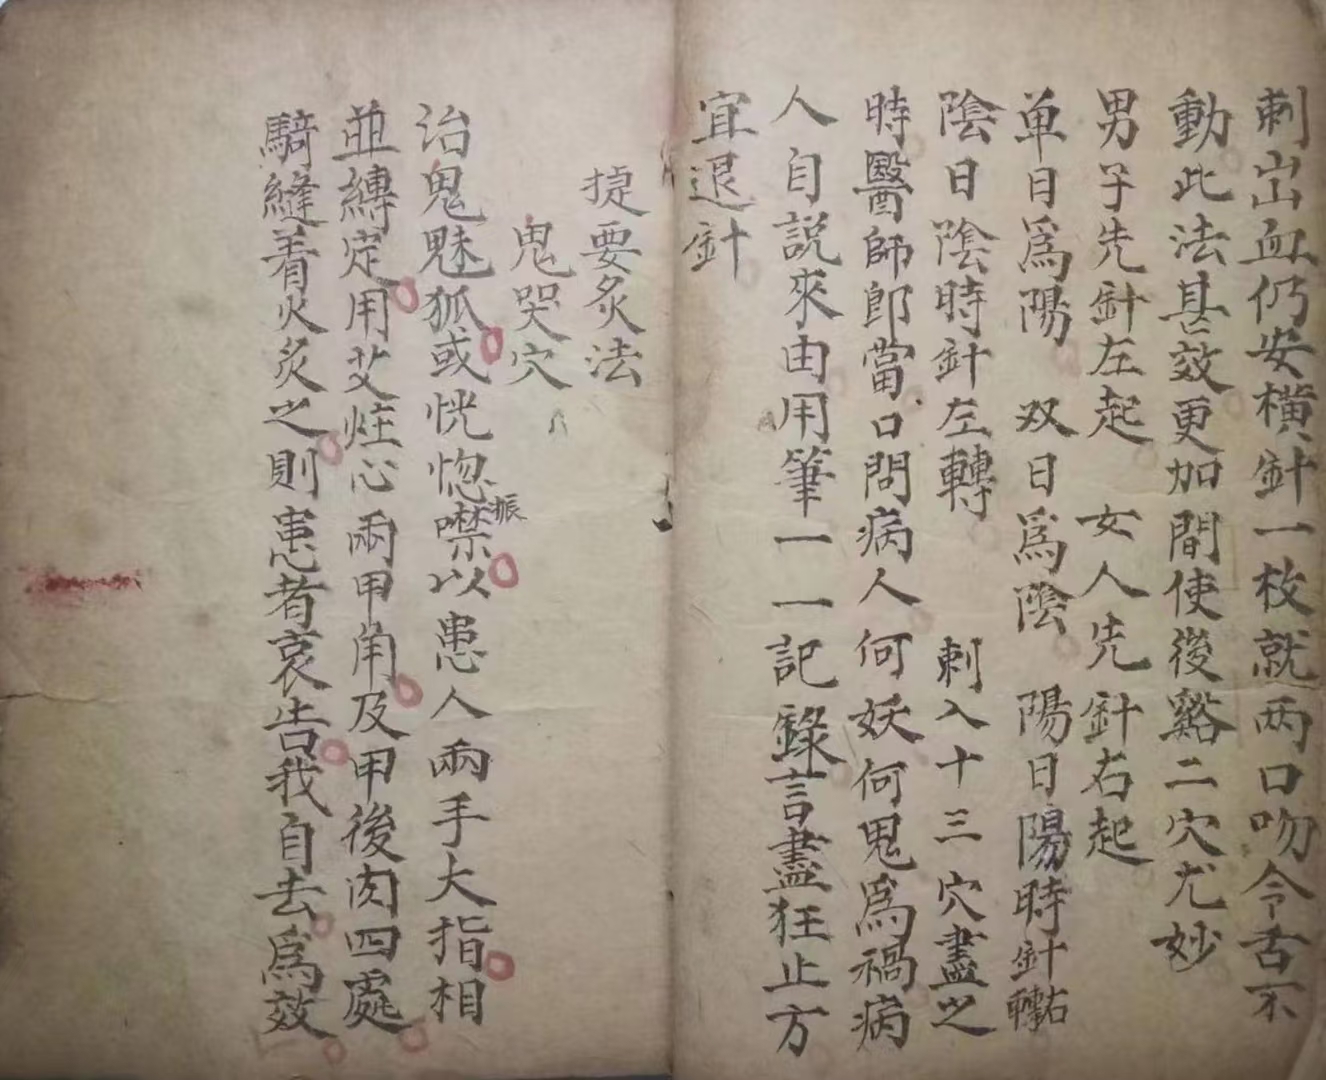 刺出血仍安橫針一枚就兩口吻令舌不
動此法甚效更加間使後谿二穴尤妙
男子先針左起 女人先針右起
单日為陽 双日為陰 陽日陽時針右轉
陰日陰時針左轉 刺入十三穴盡之
時醫師郎當口問病人何妖何鬼為禍病
人自説來由用筆一一記錄言盡狂止方
宜退針
捷要炙法
鬼哭穴
治鬼魅狐或恍惚噤振以患人兩手大指相
並縛定用艾炷心兩甲角及甲後肉四處
騎縫着火炙之則患者哀告我自去為效